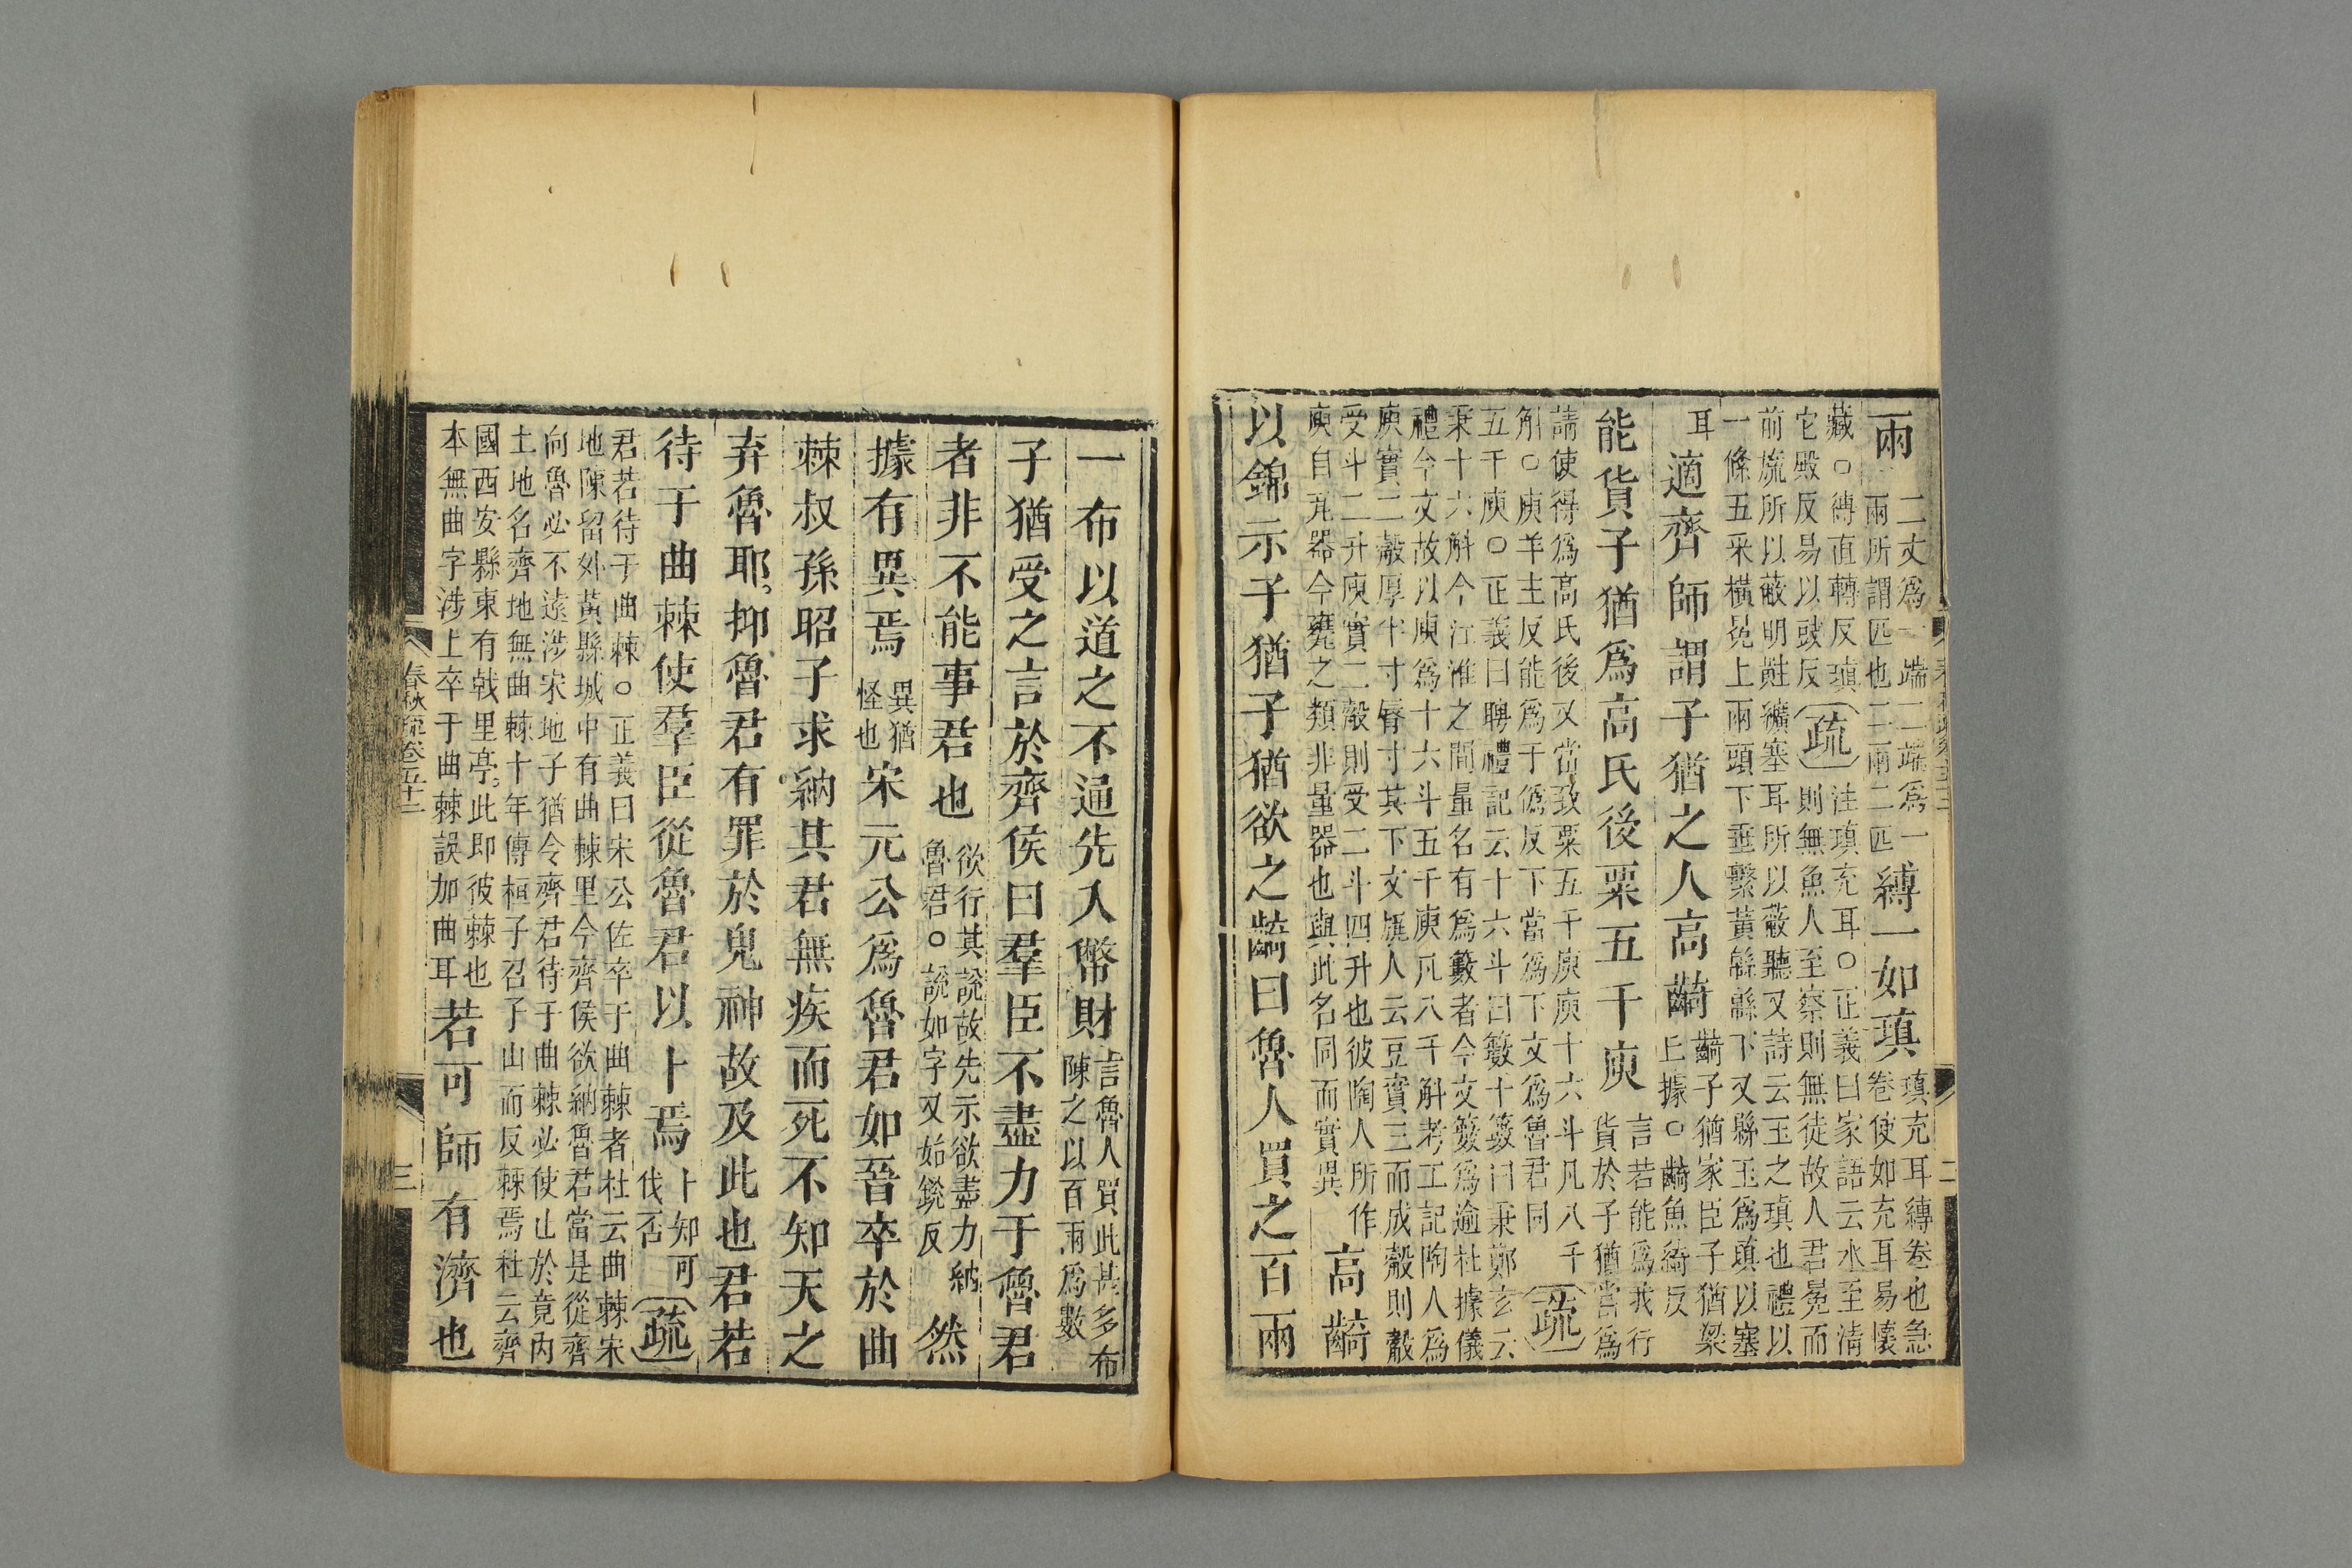 兩
二丈爲一端二端爲一
兩所謂匹也二兩二匹
縛一如瑱
瑱充耳縛卷也急
卷使如充耳易懷
藏○縛直轉反瑱
它殿反易以豉反
疏
注瑱充耳○正義曰家語云水至淸
則無魚人至察則無徒故人君冕而
前旒所以蔽明黈纊塞耳所以蔽聽又詩云玉之瑱也禮以
一條五采橫冕上兩頭下垂繫黃緜緜下又縣玉爲瑱以塞
耳
適齊師謂子猶之人高齮
齮子猶家臣子猶梁
丘據○齮魚綺反
能貨子猶爲高氏後粟五千庾
言若能爲我行
貨於子猶當爲
請使得爲高氏後又當致粟五千庾庾十六斗凡八千
斛○庾羊主反能爲于僞反下當爲下文爲魯君同
疏
五千庾○正義曰聘禮記云十六斗曰籔十籔曰秉鄭玄云
秉十六斛今江淮之間量名有爲籔者今文籔爲逾杜據儀
禮今文故以庾爲十六斗五千庾凡八千斛考工記陶人爲
庾實二觳厚半寸脣寸其下文旊人云豆實三而成觳則觳
受斗二升庾實二觳則受二斗四升也彼陶人所作
庾自瓦器今甕之類非量器也與此名同而實異
高齮
以錦示子猶子猶欲之齮曰魯人買之百兩
一布以道之不通先入幣財
言魯人買此甚多布
陳之以百兩爲數
子猶受之言於齊侯曰羣臣不盡力于魯君
者非不能事君也
欲行其說故先示欲盡力納
魯君○說如字又始銳反
然
據有異焉
異猶
怪也
宋元公爲魯君如晉卒於曲
棘叔孫昭子求納其君無疾而死不知天之
弃魯耶抑魯君有罪於鬼神故及此也君若
待于曲棘使羣臣從魯君以卜焉
卜知可
伐否
疏
君若待于曲棘○正義曰宋公佐卒于曲棘者杜云曲棘宋
地陳留外黃縣城中有曲棘里今齊侯欲納魯君當是從齊
向魯必不遠涉宋地子猶令齊君待于曲棘必使止於竟內
土地名齊地無曲棘十年傳桓子召子山而反棘焉杜云齊
國西安縣東有戟里亭此即彼棘也
本無曲字涉上卒于曲棘誤加曲耳
若可師有濟也
春秋疏卷五十二
三